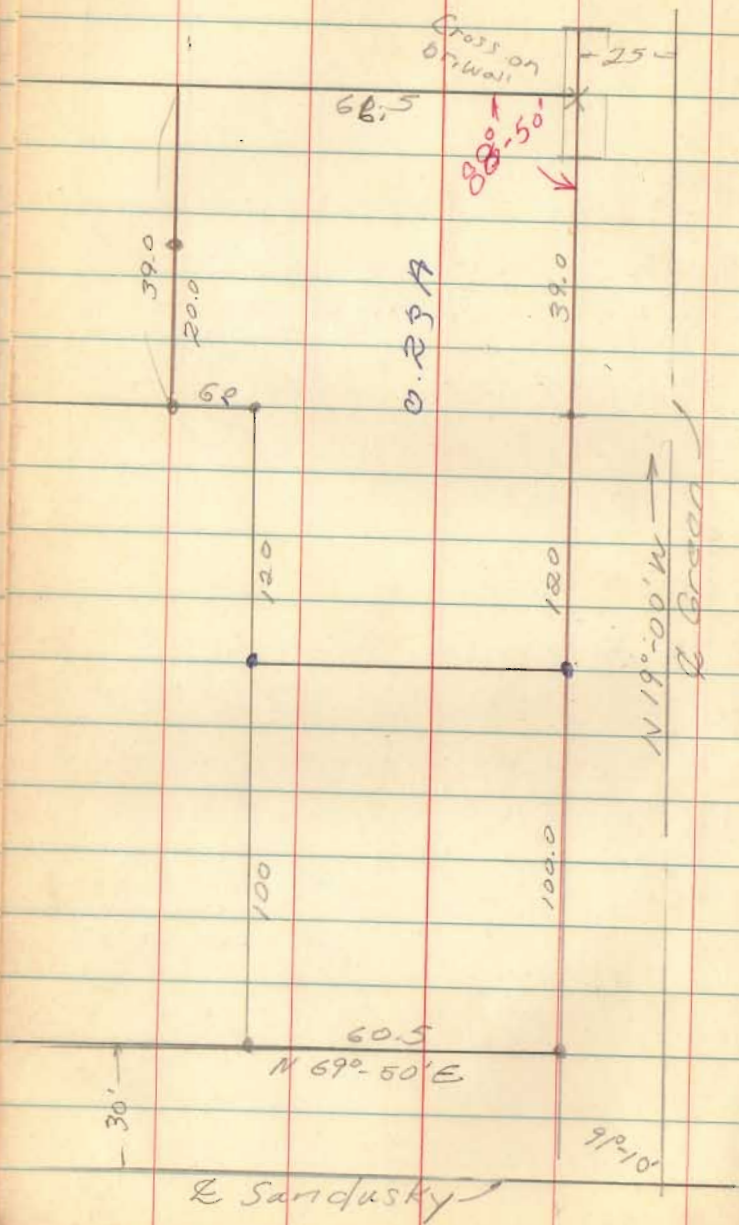 Cross on
Dr. Wall
- 25 -
66.5
88°-50'
39.0
20.0
39.0
0.29 A
6
120
120
N 19°-00' W
℄ Green
100
100.0
60.5
N 69°-50' E
- 30'
91°-10'
℄ Sandusky